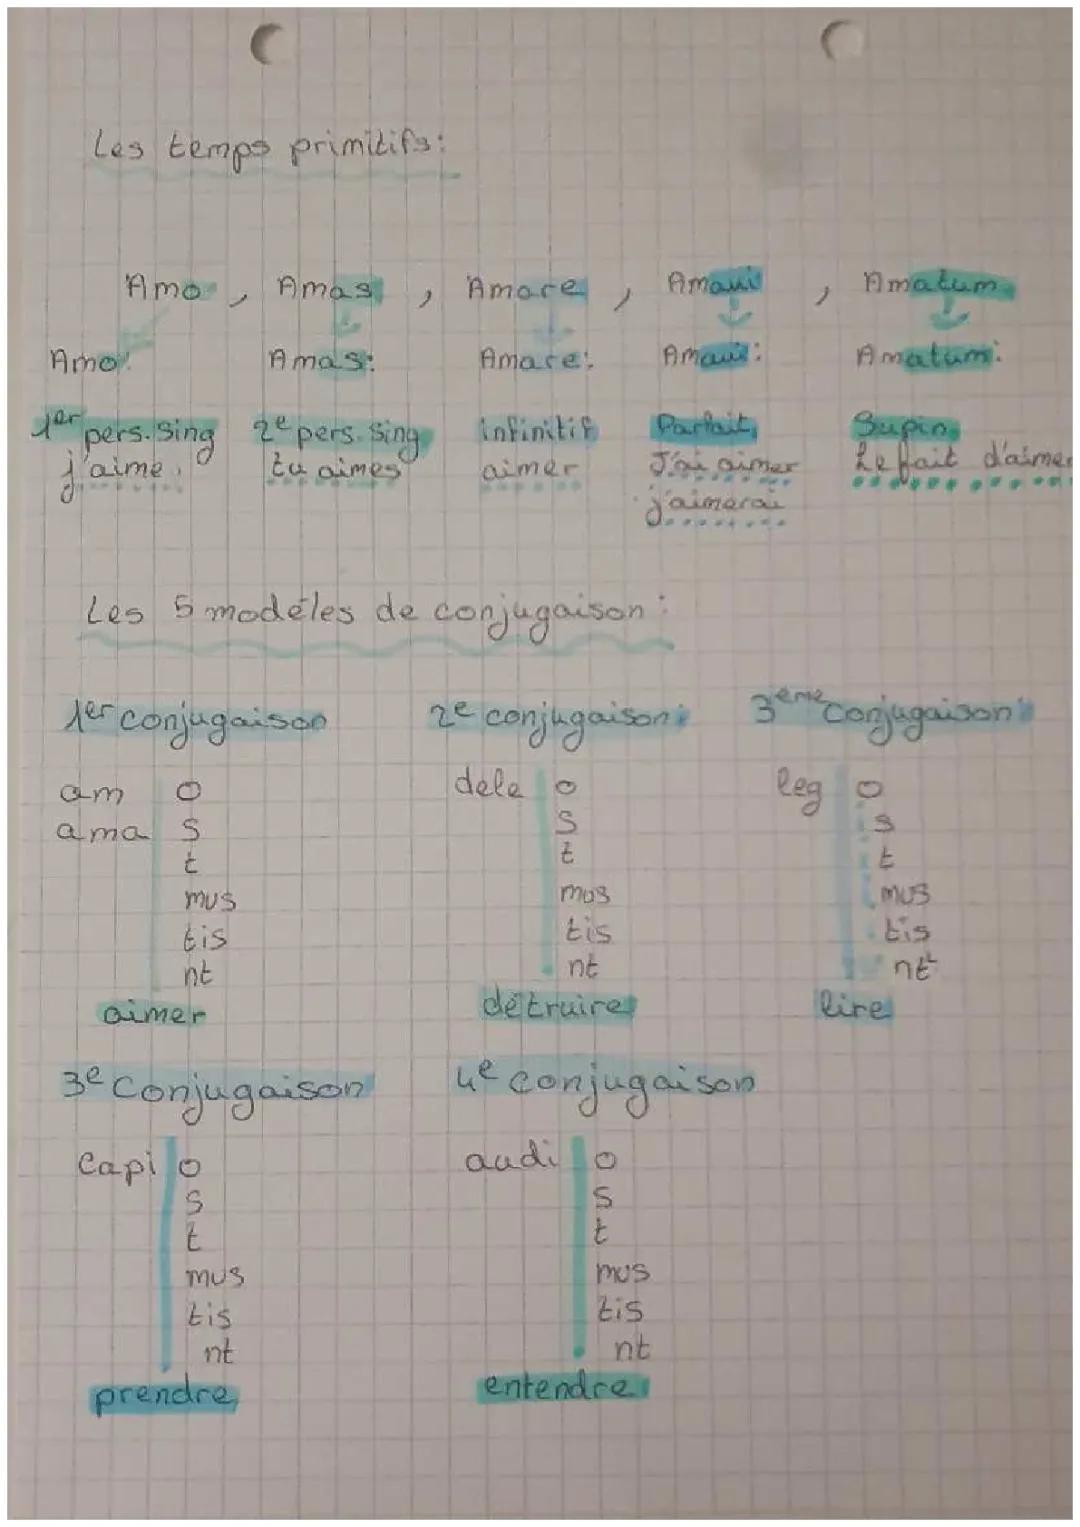 Les temps primitifs:
Amo, Amas, Amare, Amaui, Amatum
Amo: Amas: Amare: Amaui: Amatum:
1er pers. sing 2e pers. sing infinitif Parfait Supin
j'aime tu aimes aimer J'ai aimer Le fait d'aimer
j'aimerai
Les 5 modéles de conjugaison:
1er conjugaison 2e conjugaison: 3eme conjugaison:
am o dele o leg o
ama s s s
t t t
mus mus mus
tis tis tis
nt nt nt
aimer détruire lire
3e conjugaison 4e conjugaison
capi o audi o
s s
t t
mus mus
tis tis
nt nt
prendre entendre